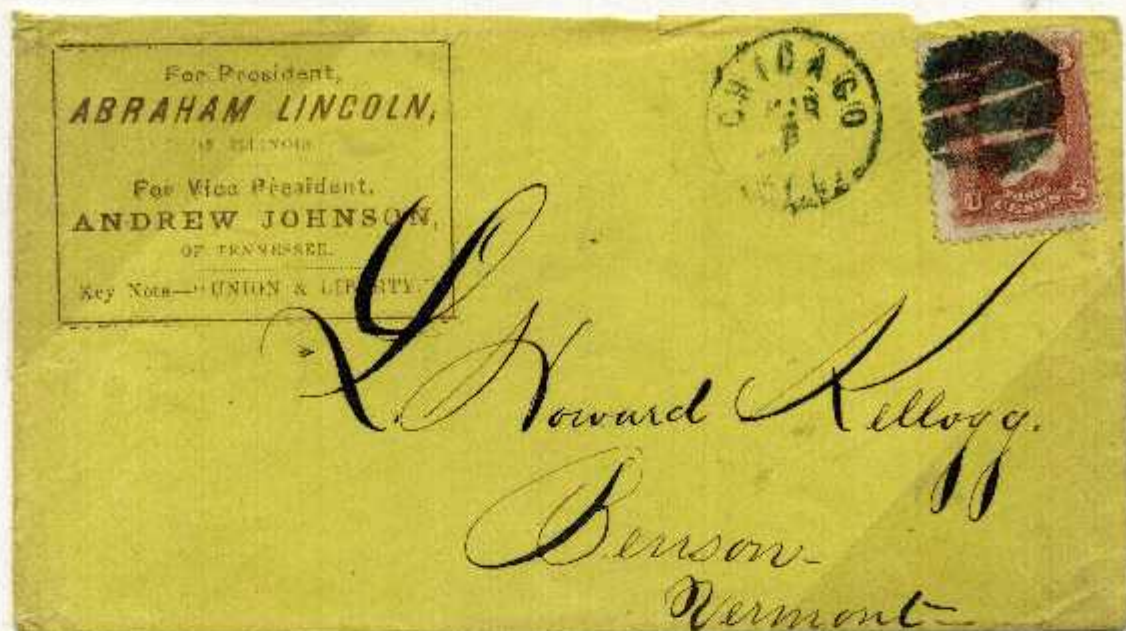 For President,
ABRAHAM LINCOLN,
OF ILLINOIS
For Vice President,
ANDREW JOHNSON,
OF TENNESSEE.
Key Note—"UNION & LIBERTY."
CHICAGO
U S
L. Howard Kellogg.
Benson
Vermont